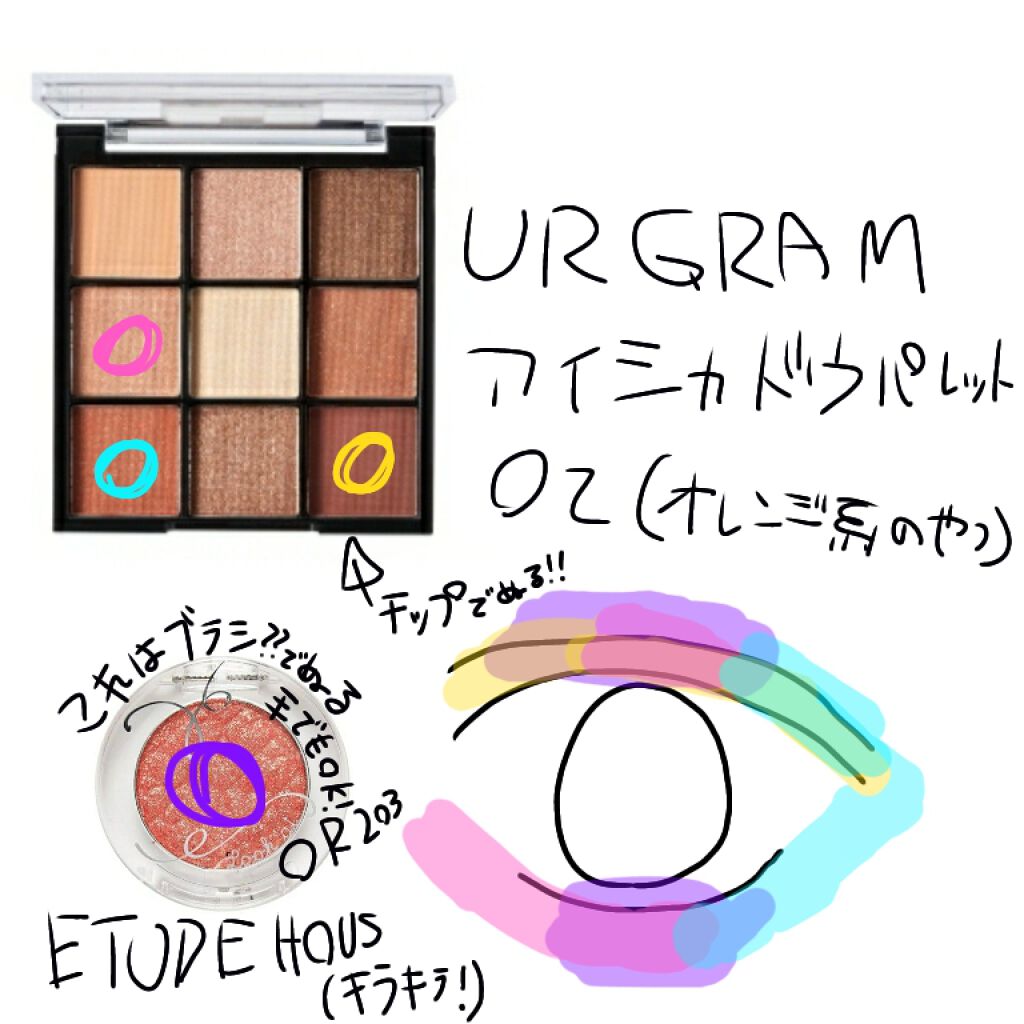 URGRAM
アイシャドウパレット
02(オレンジ系のやつ)
チップでぬる!!
これはブラシ??でぬる
手でもOK!!
OR203
ETUDE HOUS
(キラキラ!)